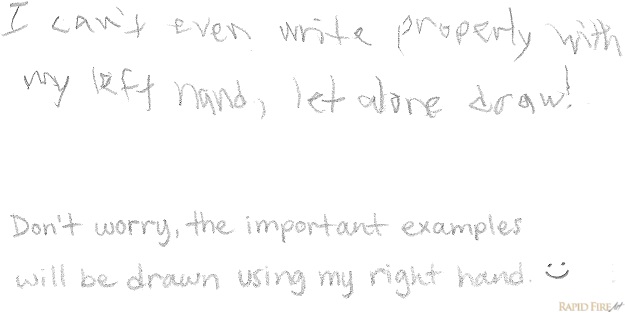 I can't even write properly with
my left hand, let alone draw!
Don't worry, the important examples
will be drawn using my right hand. :)
RAPID FIRE Art